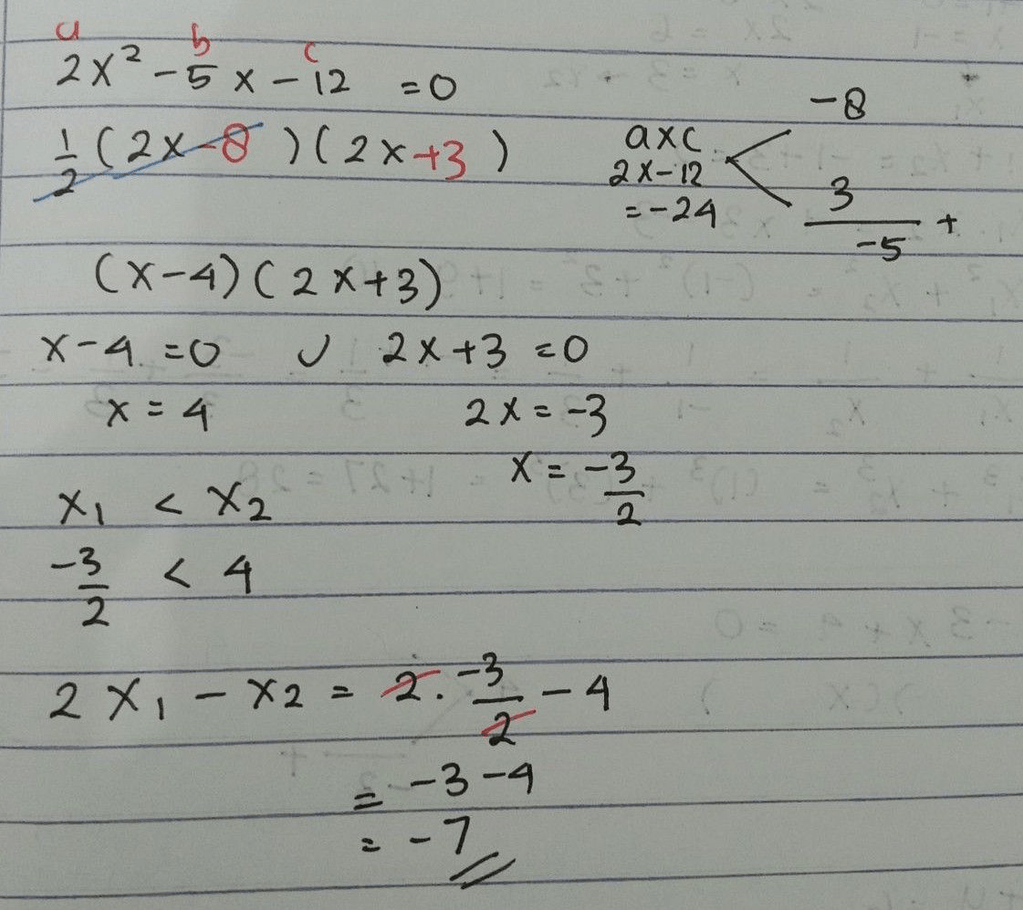 a b c
2x² - 5x - 12 = 0
1/2 (2x - 8)(2x + 3)
-8
axc
2x-12
= -24
3
+
-5
(x-4)(2x+3)
x-4 = 0 ∪ 2x+3 = 0
x = 4 2x = -3
x = -3/2
x₁ < x₂
-3/2 < 4
2x₁ - x₂ = 2 . -3/2 - 4
= -3 - 4
= -7